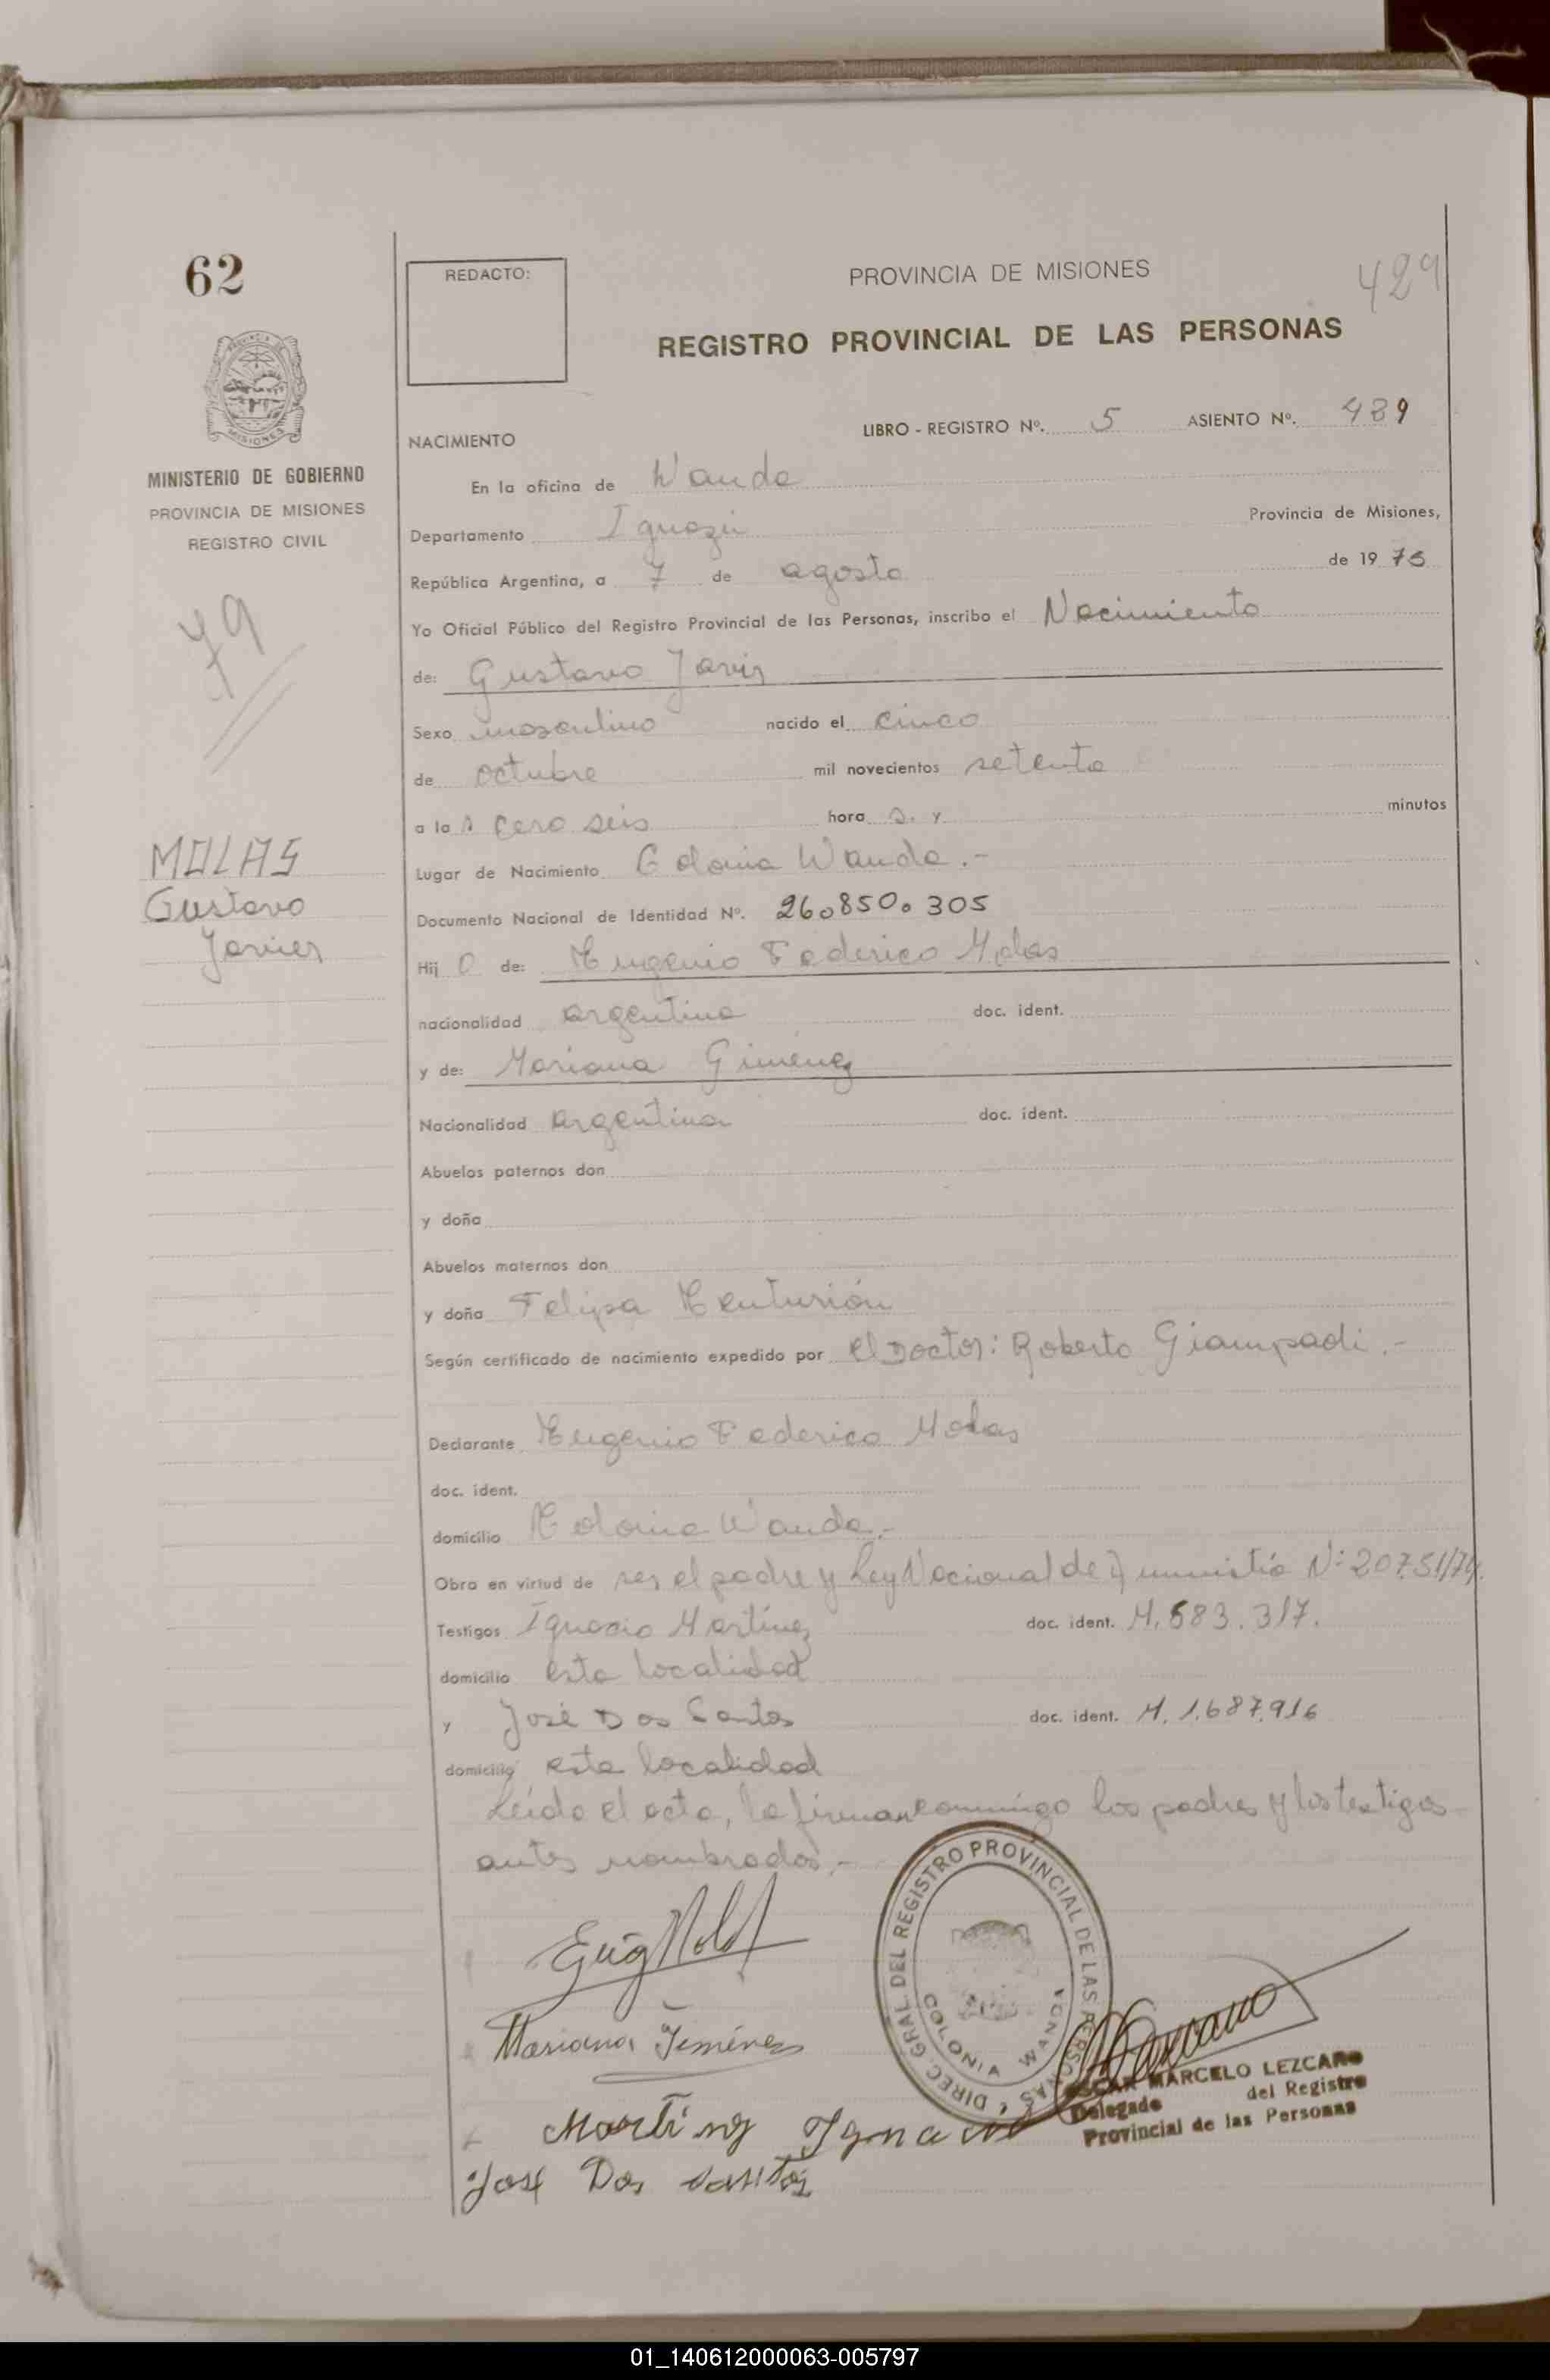 62
REDACTO:
PROVINCIA DE MISIONES
429
REGISTRO PROVINCIAL DE LAS PERSONAS
LIBRO - REGISTRO Nº. 5 ASIENTO Nº. 489
NACIMIENTO
MINISTERIO DE GOBIERNO
PROVINCIA DE MISIONES
REGISTRO CIVIL
79
MOLAS
Gustavo
Javier
En la oficina de Wanda
Departamento Iguazú Provincia de Misiones,
República Argentina, a 7 de agosto de 1975
Yo Oficial Público del Registro Provincial de las Personas, inscribo el Nacimiento
de: Gustavo Javier
Sexo masculino nacido el cinco
de octubre mil novecientos setenta
a la s cero seis hora s. y minutos
Lugar de Nacimiento Colonia Wanda.-
Documento Nacional de Identidad Nº. 26.850.305
Hij o de: Eugenio Federico Molas
nacionalidad argentina doc. ident.
y de: Mariana Gimenez
Nacionalidad argentina doc. ident.
Abuelos paternos don
y doña
Abuelos maternos don
y doña Felipa Centurión
Según certificado de nacimiento expedido por el Doctor: Roberto Giampadi.-
Declarante Eugenio Federico Molas
doc. ident.
domicilio Colonia Wanda.-
Obra en virtud de ser el padre y Ley Nacional de Amnistía Nº 20751/74.
Testigos Ignacio Martínez doc. ident. M. 583.317.
domicilio esta localidad
y José Dos Santos doc. ident. M. 1.687.916
domicilio esta localidad
Leída el acta, la firman conmigo los padres y los testigos
antes nombrados.-
Eug Molas
Mariana Jiménez
Martinez Ignacio
José Dos Santos
DIREC. GRAL. DEL REGISTRO PROVINCIAL DE LAS PERSONAS
COLONIA WANDA
OSCAR MARCELO LEZCANO
Delegado del Registro
Provincial de las Personas
01_140612000063-005797